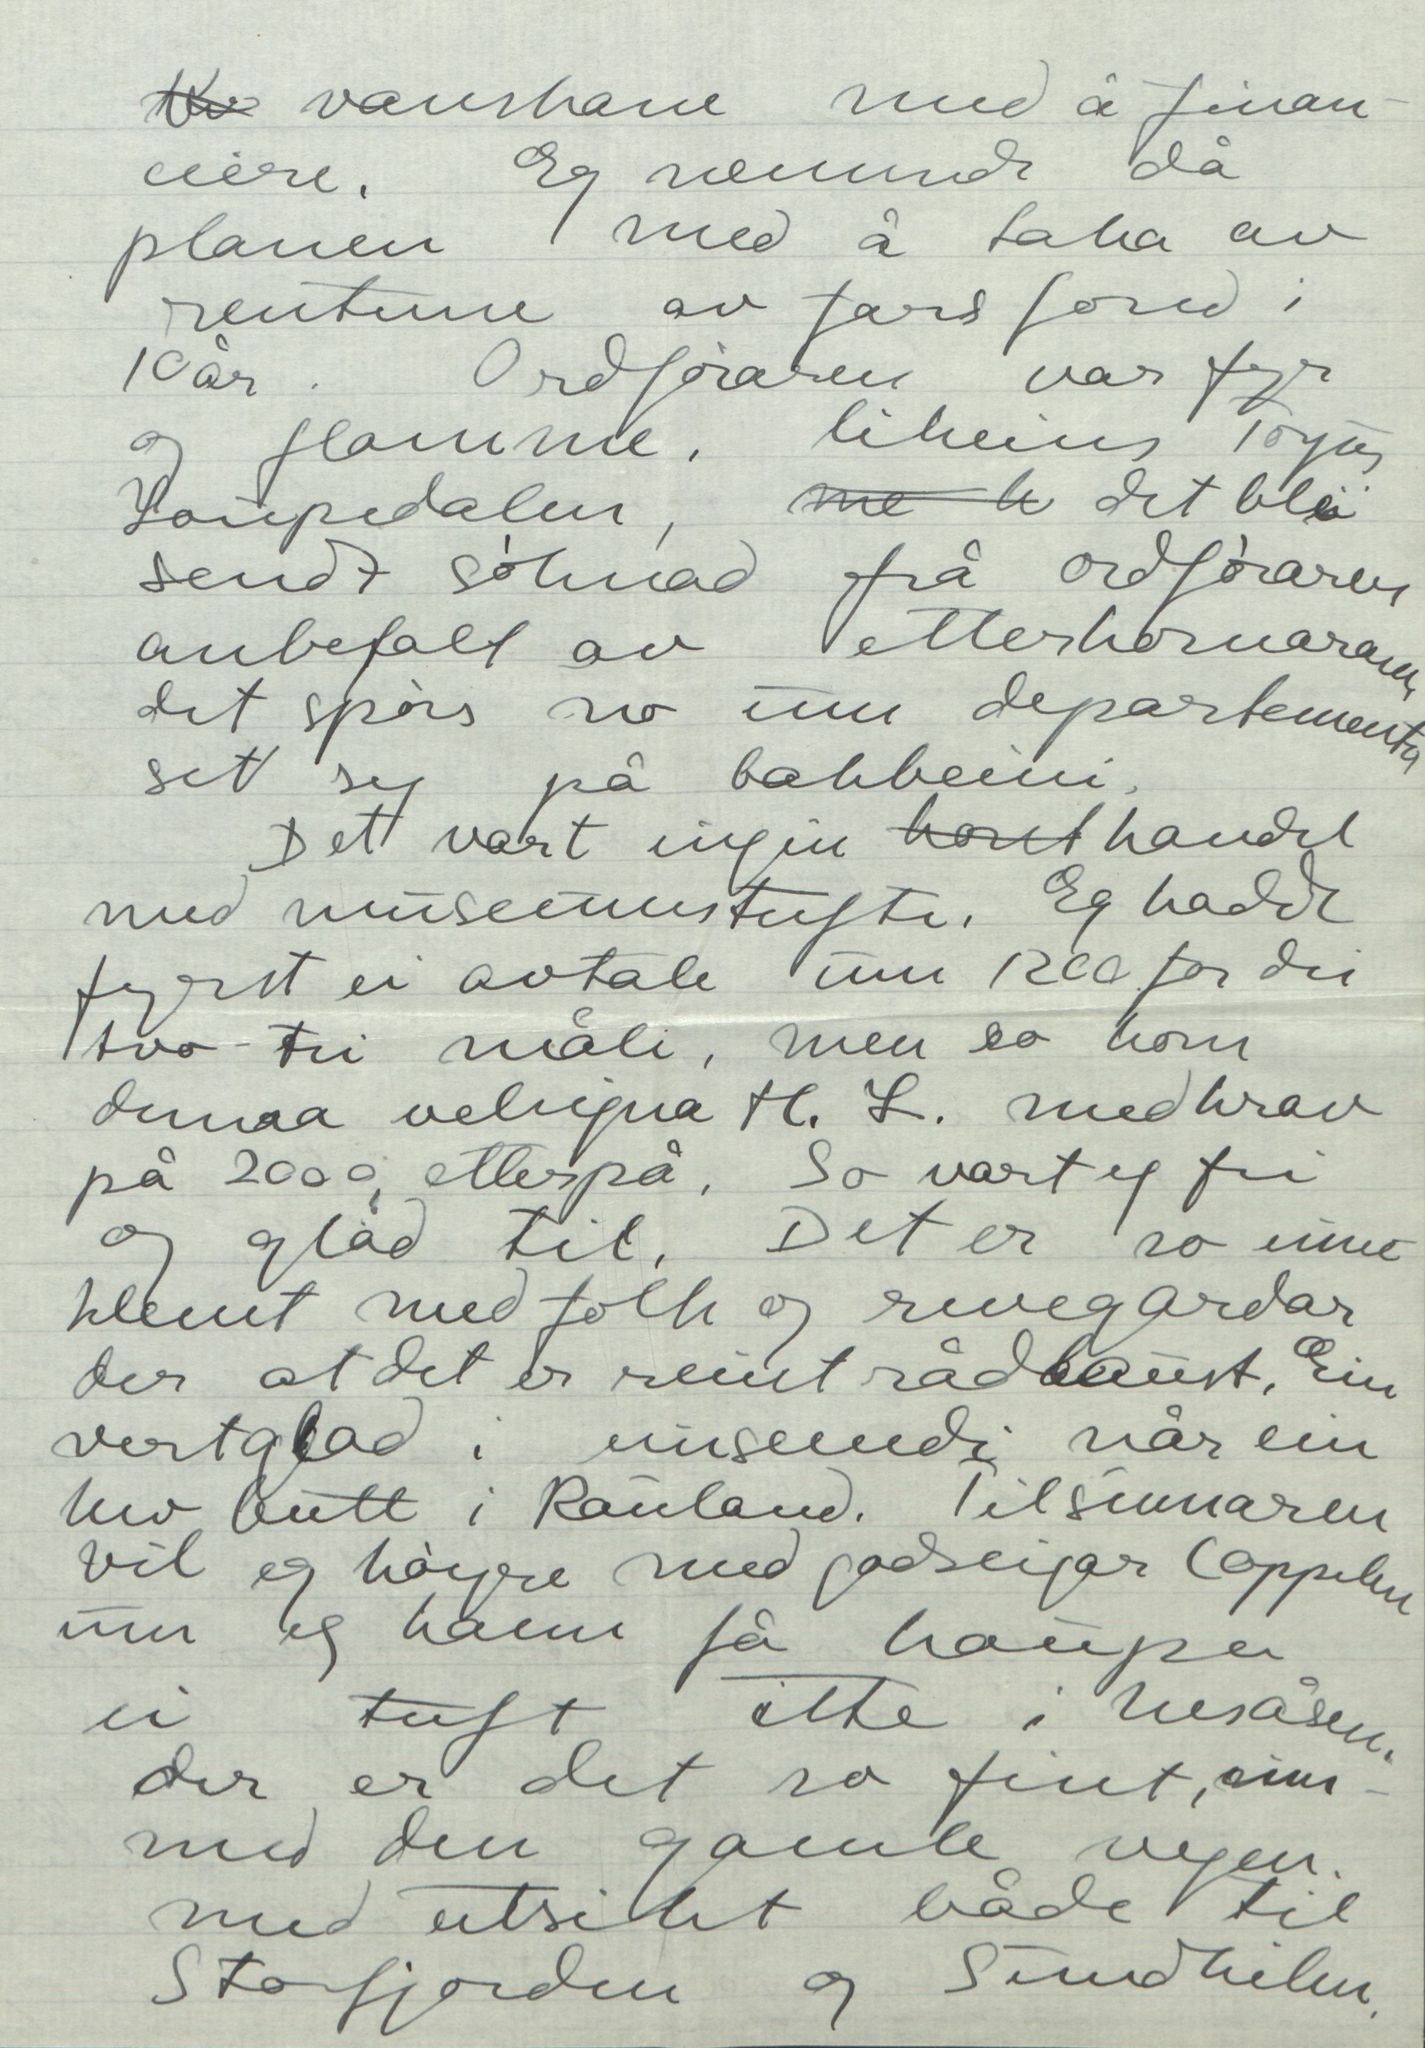 vanskane med å finan-
ciere. Eg nemnde då
planen med å taka av
rentune av fars fond i
10 år. Ordföraren var fyr
og flamme. likeins
Loupedalen, det blei
sendt söknad frå ordföraren
anbefalt av
det spörs no um departementa
set seg på bakbeini.
Det vart ingin handel
med museumstufti. Eg hadde
fyrst ei avtale um 1200 for dei
two-tri måli, men so kom
denna velsigna H. L. med krav
på 2000, etterpå. So vart eg fri
og glad til. Det er so
klemt med folk og revegardar
der at det er reint rådlaust. Ein
vert glad i når ein
hev butt i Rauland. Til sumaren
vil eg höyre med godseigar Cappelen
um eg kann få kaupa
ei tuft itte i Nesåsen.
der er det so fint,
med den gamle vegen.
med utsikt både til
Storfjorden og Sundkilen.